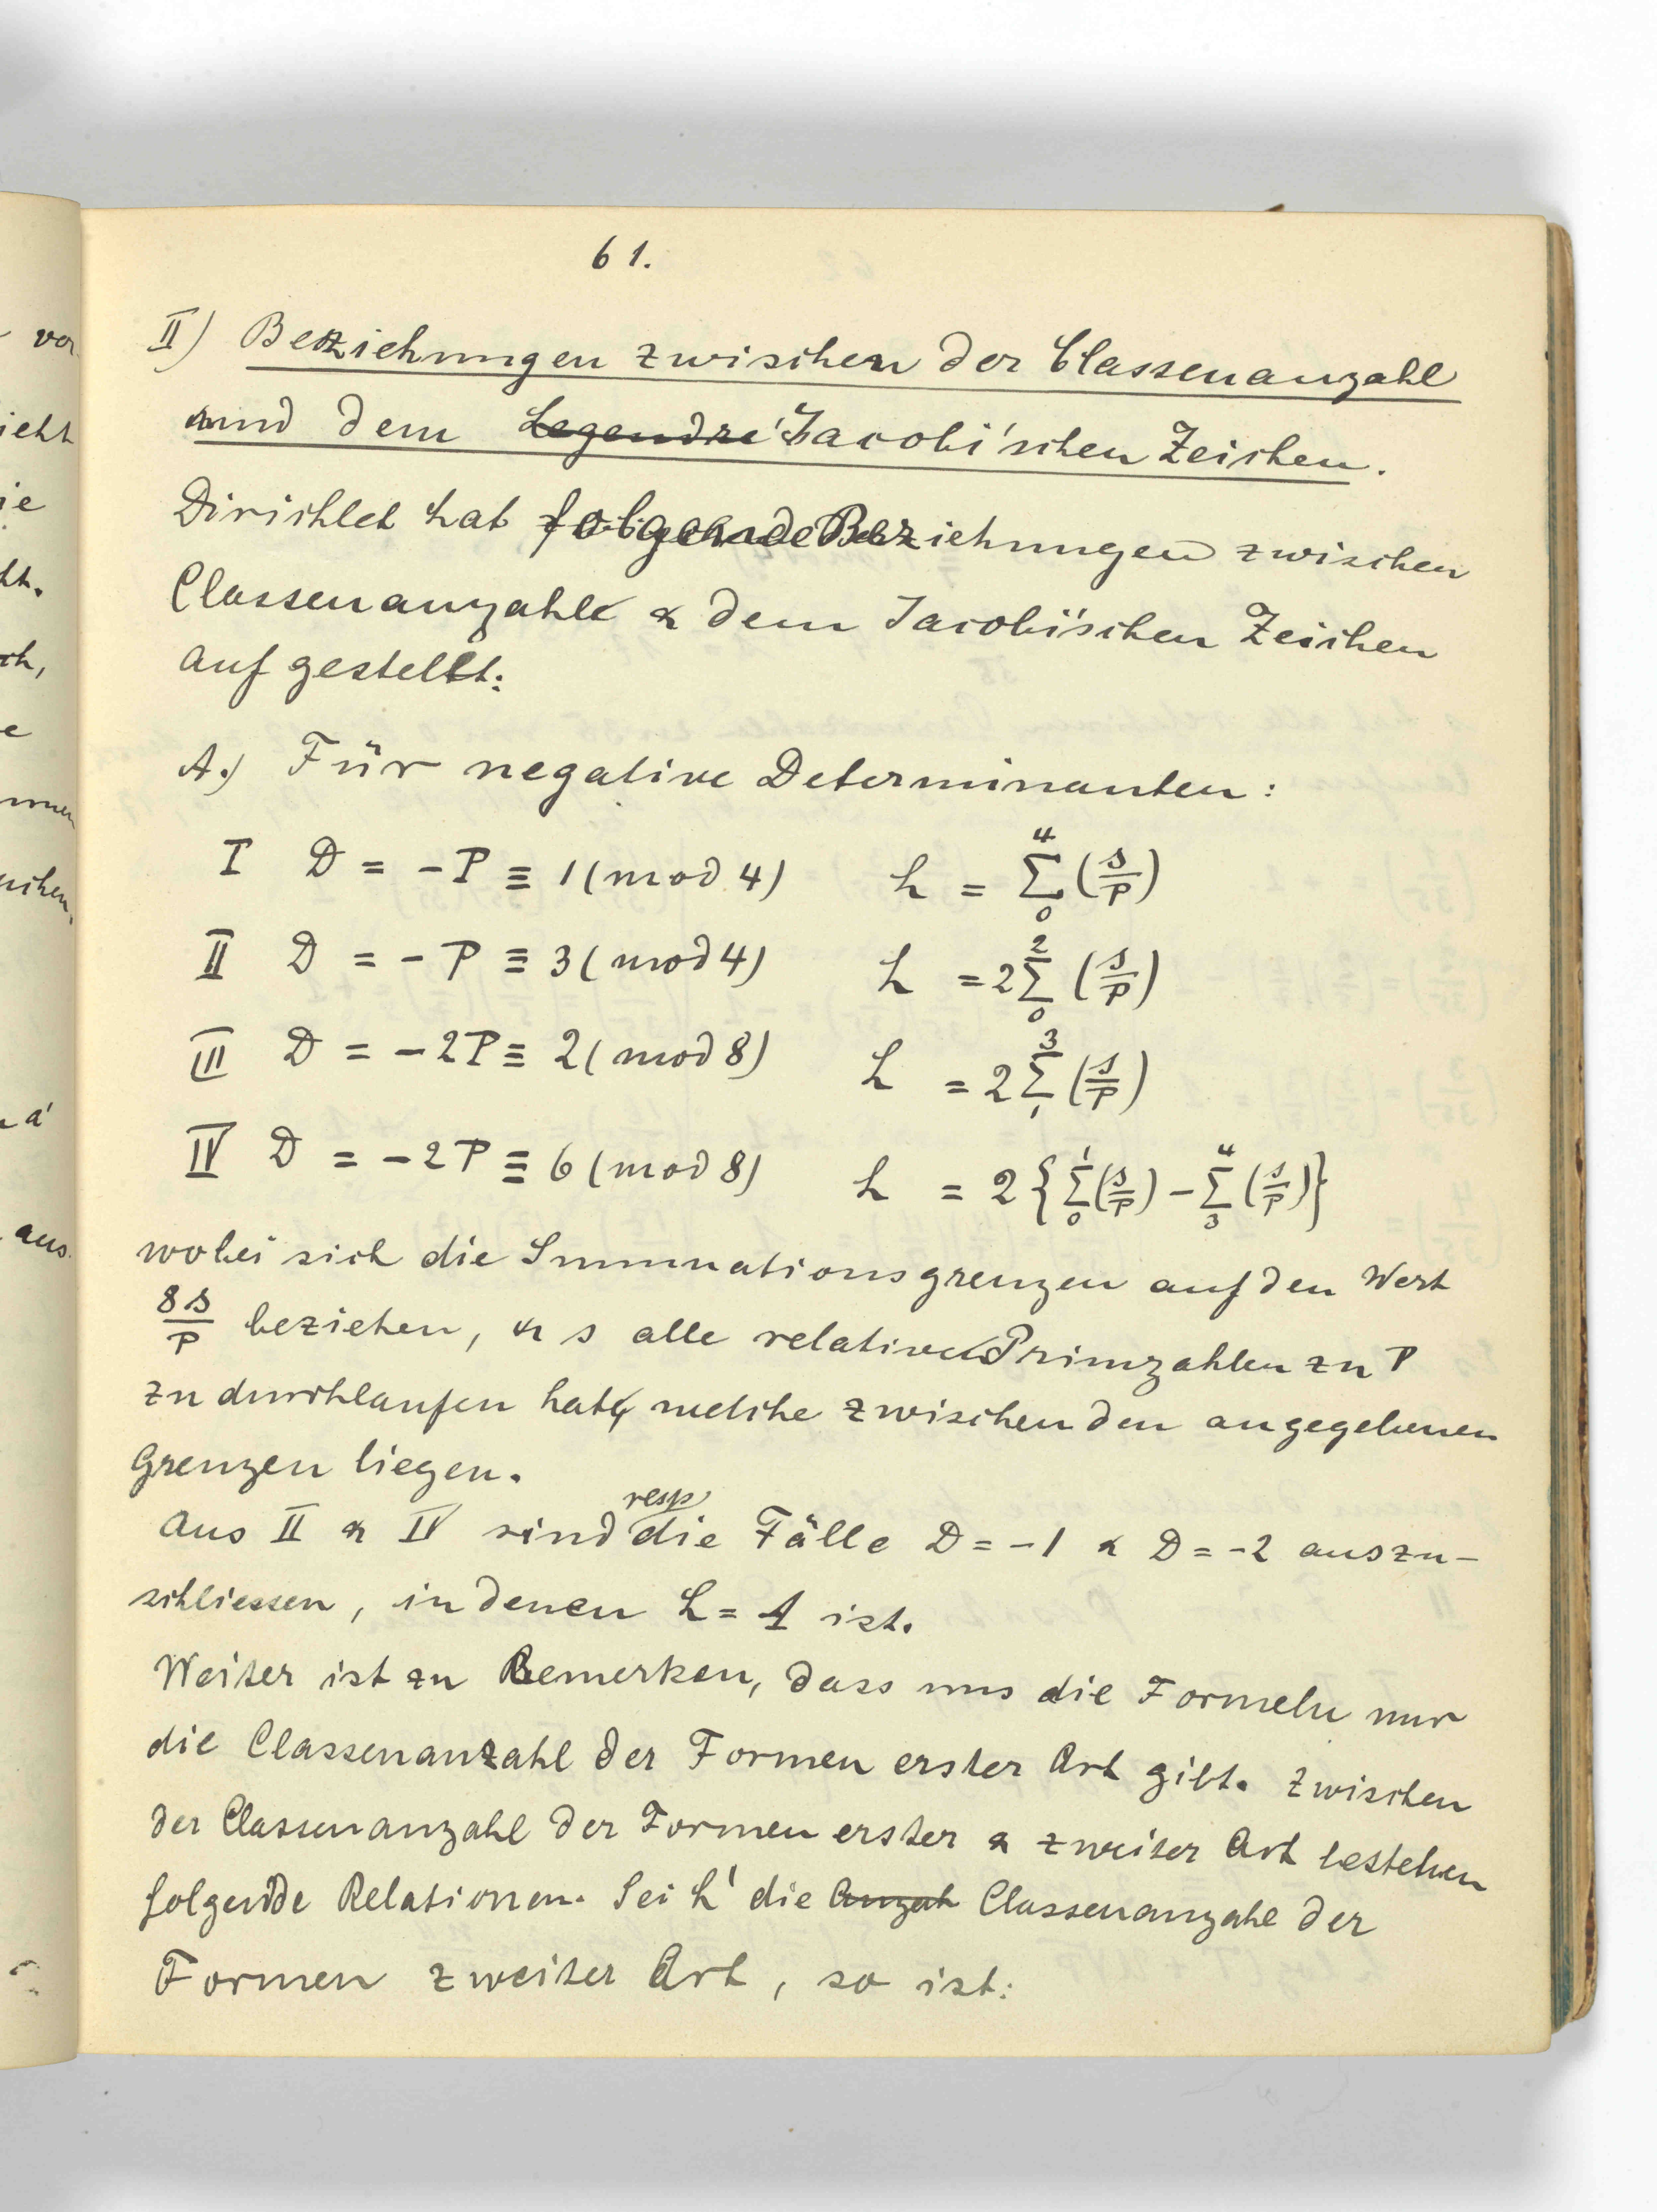 61.
II) Beziehungen zwischen der Classenanzahl
und dem Legendre' Jacobi'schen Zeichen.
Dirichlet hat folgende Beziehungen zwischen
Classenanzahl & dem Jacobi'schen Zeichen
aufgestellt:
A.) Für negative Determinanten:
I D = -P ≡ 1 (mod 4) h = \sum_0^4 (s/P)
II D = -P ≡ 3 (mod 4) h = 2 \sum_0^2 (s/P)
III D = -2P ≡ 2 (mod 8) h = 2 \sum_1^3 (s/P)
IV D = -2P ≡ 6 (mod 8) h = 2 { \sum_0^1 (s/P) - \sum_3^4 (s/P) }
wobei sich die Summationsgrenzen auf den Wert
8s/P beziehen, & s alle relativen Primzahlen zu P
zu durchlaufen hat, welche zwischen den angegebenen
Grenzen liegen.
Aus II & IV sind resp die Fälle D = -1 & D = -2 auszu-
schliessen, in denen h = 1 ist.
Weiter ist zu Bemerken, dass uns die Formeln nur
die Classenanzahl der Formen erster Art gibt. Zwischen
der Classenanzahl der Formen erster & zweiter Art bestehen
folgende Relationen. Sei h' die Anzah Classenanzahl der
Formen zweiter Art, so ist: